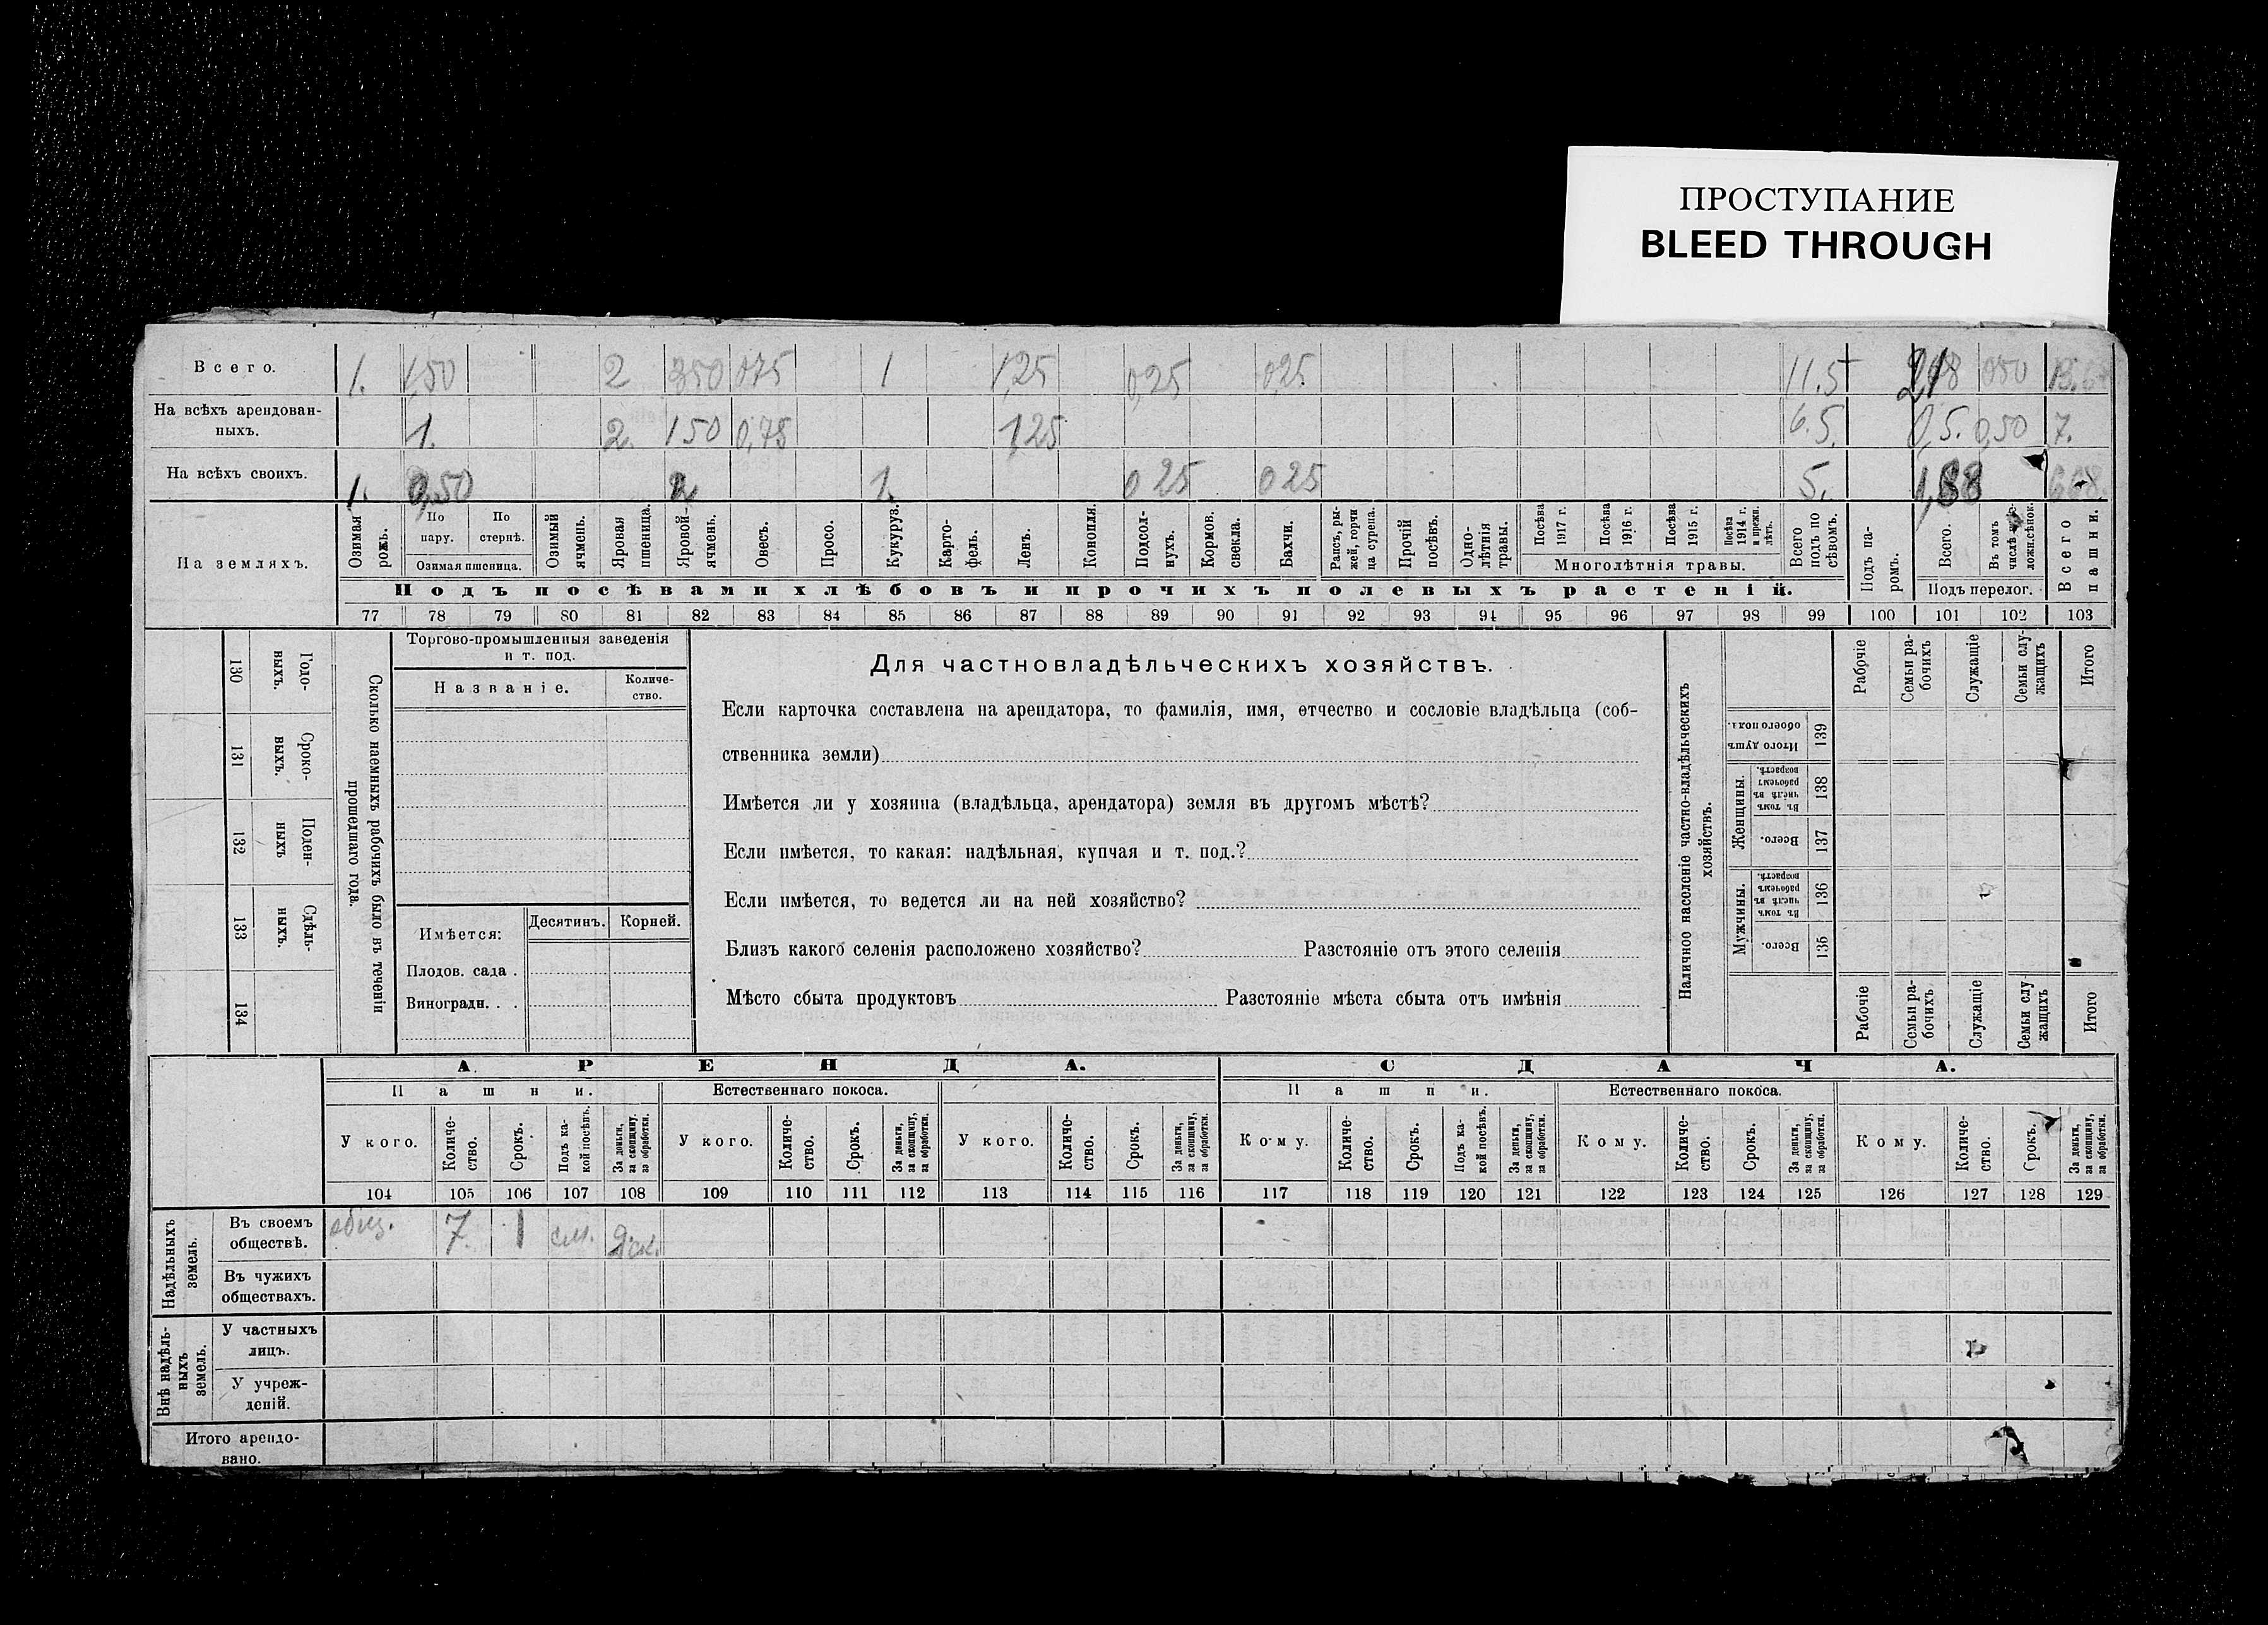 ПРОСТУПАНИЕ
BLEED THROUGH
Всего. 1. 1,50 2 350 0,75 1 1,25 0,25 0,25 11.5 050
На всѣхъ арендован-
ныхъ. 1. 2. 150 0,75 1,25 6.5. 0,5. 0,50 7.
На всѣхъ своихъ. 1. 0,50 2 1. 0 25 0 25 5. 1,88
На земляхъ.
Озимая рожь.
По пару.
По стернѣ.
Озимая пшеница.
Озимый ячмень.
Яровая пшеница.
Яровой ячмень.
Овесъ.
Просо.
Кукуруз.
Карто-
фель.
Ленъ.
Конопля.
Подсол-
нухъ.
Кормов.
свекла.
Бахчи.
Рапсъ, ры-
жей, горчи
ца сурепа.
Прочій
посѣвъ.
Одно-
лѣтнія
травы.
Посѣва
1917 г.
Посѣва
1916 г.
Посѣва
1915 г.
Посѣва
1914 г.
и прежн.
лѣтъ.
Многолѣтнія травы.
Всего
подъ по
сѣвомъ.
Подъ па-
ромъ.
Всего.
Въ томъ
числѣ
Подъ перелог.
Всего
пашни.
Подъ посѣвами хлѣбовъ и прочихъ полевыхъ растеній.
77 78 79 80 81 82 83 84 85 86 87 88 89 90 91 92 93 94 95 96 97 98 99 100 101 102 103
130 Годо-
выхъ.
131 Сроко-
выхъ.
132 Поден-
ныхъ
133 Сдѣль-
ныхъ.
134
Сколько наемныхъ рабочихъ было въ теченіи
прошедшаго года.
Торгово-промышленныя заведенія
и т. под.
Названіе.
Количе-
ство.
Имѣется:
Десятинъ.
Корней.
Плодов. сада .
Виноградн. . .
Для частновладѣльческихъ хозяйствъ.
Если карточка составлена на арендатора, то фамилія, имя, отчество и сословіе владѣльца (соб-
ственника земли)
Имѣется ли у хозяина (владѣльца, арендатора) земля въ другомъ мѣстѣ?
Если имѣется, то какая: надѣльная, купчая и т. под.?
Если имѣется, то ведется ли на ней хозяйство?
Близъ какого селенія расположено хозяйство? Разстояніе отъ этого селенія
Мѣсто сбыта продуктовъ Разстояніе мѣста сбыта отъ имѣнія
Наличное населеніе частно-владѣльческихъ
хозяйствъ.
Рабочіе
Семьи ра-
бочихъ
Служащіе
Семьи слу-
жащихъ
Итого
Итого душъ
обоего пола. 139
Женщины.
Въ томъ
числѣ въ
рабочемъ
возрастѣ. 138
Всего. 137
Мужчины.
Въ томъ
числѣ въ
рабочемъ
возрастѣ. 136
Всего. 135
Рабочіе
Семьи ра-
бочихъ
Служащіе
Семьи слу
жащихъ
Итого
АРЕНДА. СДАЧА.
Пашни. Естественнаго покоса. Пашни. Естественнаго покоса.
У кого. Количе-
ство. Срокъ. Подъ ка-
кой посѣвъ. За деньги,
за скопщину,
за обработки.
У кого. Количе-
ство. Срокъ. За деньги,
за скопщину,
за обработки.
У кого. Количе-
ство. Срокъ. За деньги,
за скопщину,
за обработки.
Кому. Количе-
ство. Срокъ. Подъ ка-
кой посѣвъ. За деньги,
за скопщину,
за обработки.
Кому. Количе-
ство. Срокъ. За деньги,
за скопщину,
за обработки.
Кому. Количе-
ство. Срокъ. За деньги,
за скопщину,
за обработки.
104 105 106 107 108 109 110 111 112 113 114 115 116 117 118 119 120 121 122 123 124 125 126 127 128 129
Надѣльныхъ
земель.
Въ своемъ
обществѣ. общ. 7. 1
Въ чужихъ
обществахъ.
Внѣ надѣль-
ныхъ
земель.
У частныхъ
лицъ.
У учреж-
деній.
Итого арендо-
вано.